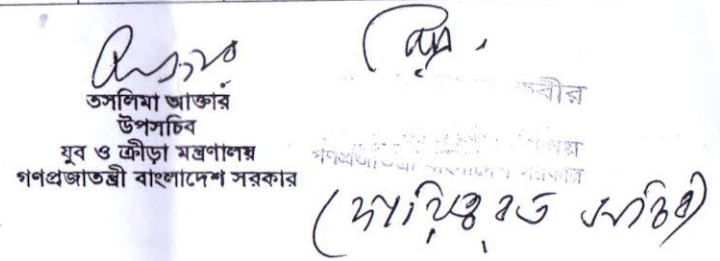 তসলিমা আক্তার
উপসচিব
যুব ও ক্রীড়া মন্ত্রণালয়
গণপ্রজাতন্ত্রী বাংলাদেশ সরকার
কবীর
গণপ্রজাতন্ত্রী বাংলাদেশ সরকার
(দায়িত্বরত সচিব)